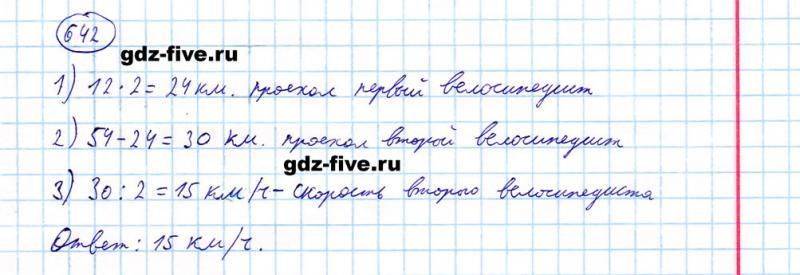 642
gdz-five.ru
1) 12·2=24км. проехал первый велосипедист
2) 54-24=30 км. проехал второй велосипедист
gdz-five.ru
3) 30:2=15 км/ч-скорость второго велосипедиста
Ответ: 15 км/ч.